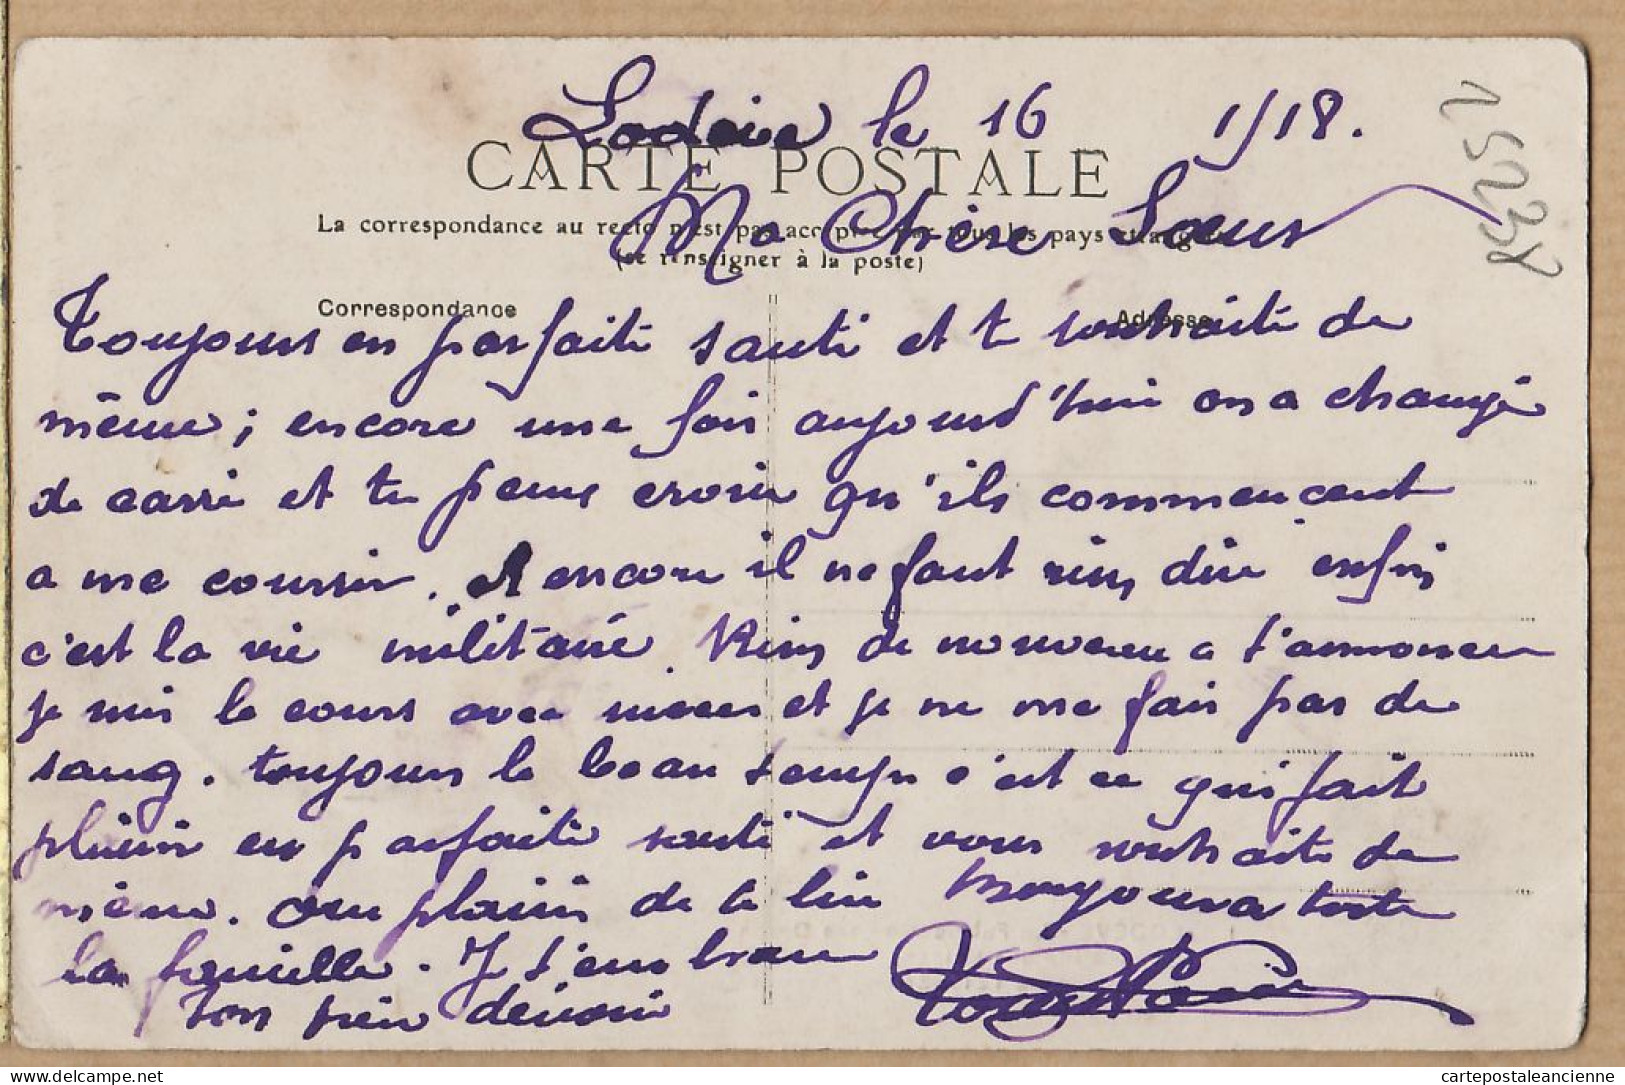 Lodève le 16 1/18.
15238
CARTE POSTALE
Ma Chère Soeur
La correspondance au recto n'est pas acceptée par tous les pays étrangers
(se renseigner à la poste)
Correspondance
Adresse
Toujours en parfaite santé et te souhaite de
même ; encore une fois aujourd'hui on a changé
de carré et tu peus croire qu'ils commencent
a me courrir. et encore il ne faut rien dire enfin
c'est la vie militaire. Rien de nouveau a t'annoncer
je suis le cours avec et je ne me fais pas de
sang. toujours le beau temps c'est ce qui fait
plaisir en parfaite santé et vous souhaite de
même. Au plaisir de te lire Bonjour a toute
la famille. Je t'embrasse
Ton frère dévoué
delcampe.net
cartepostaleancienne